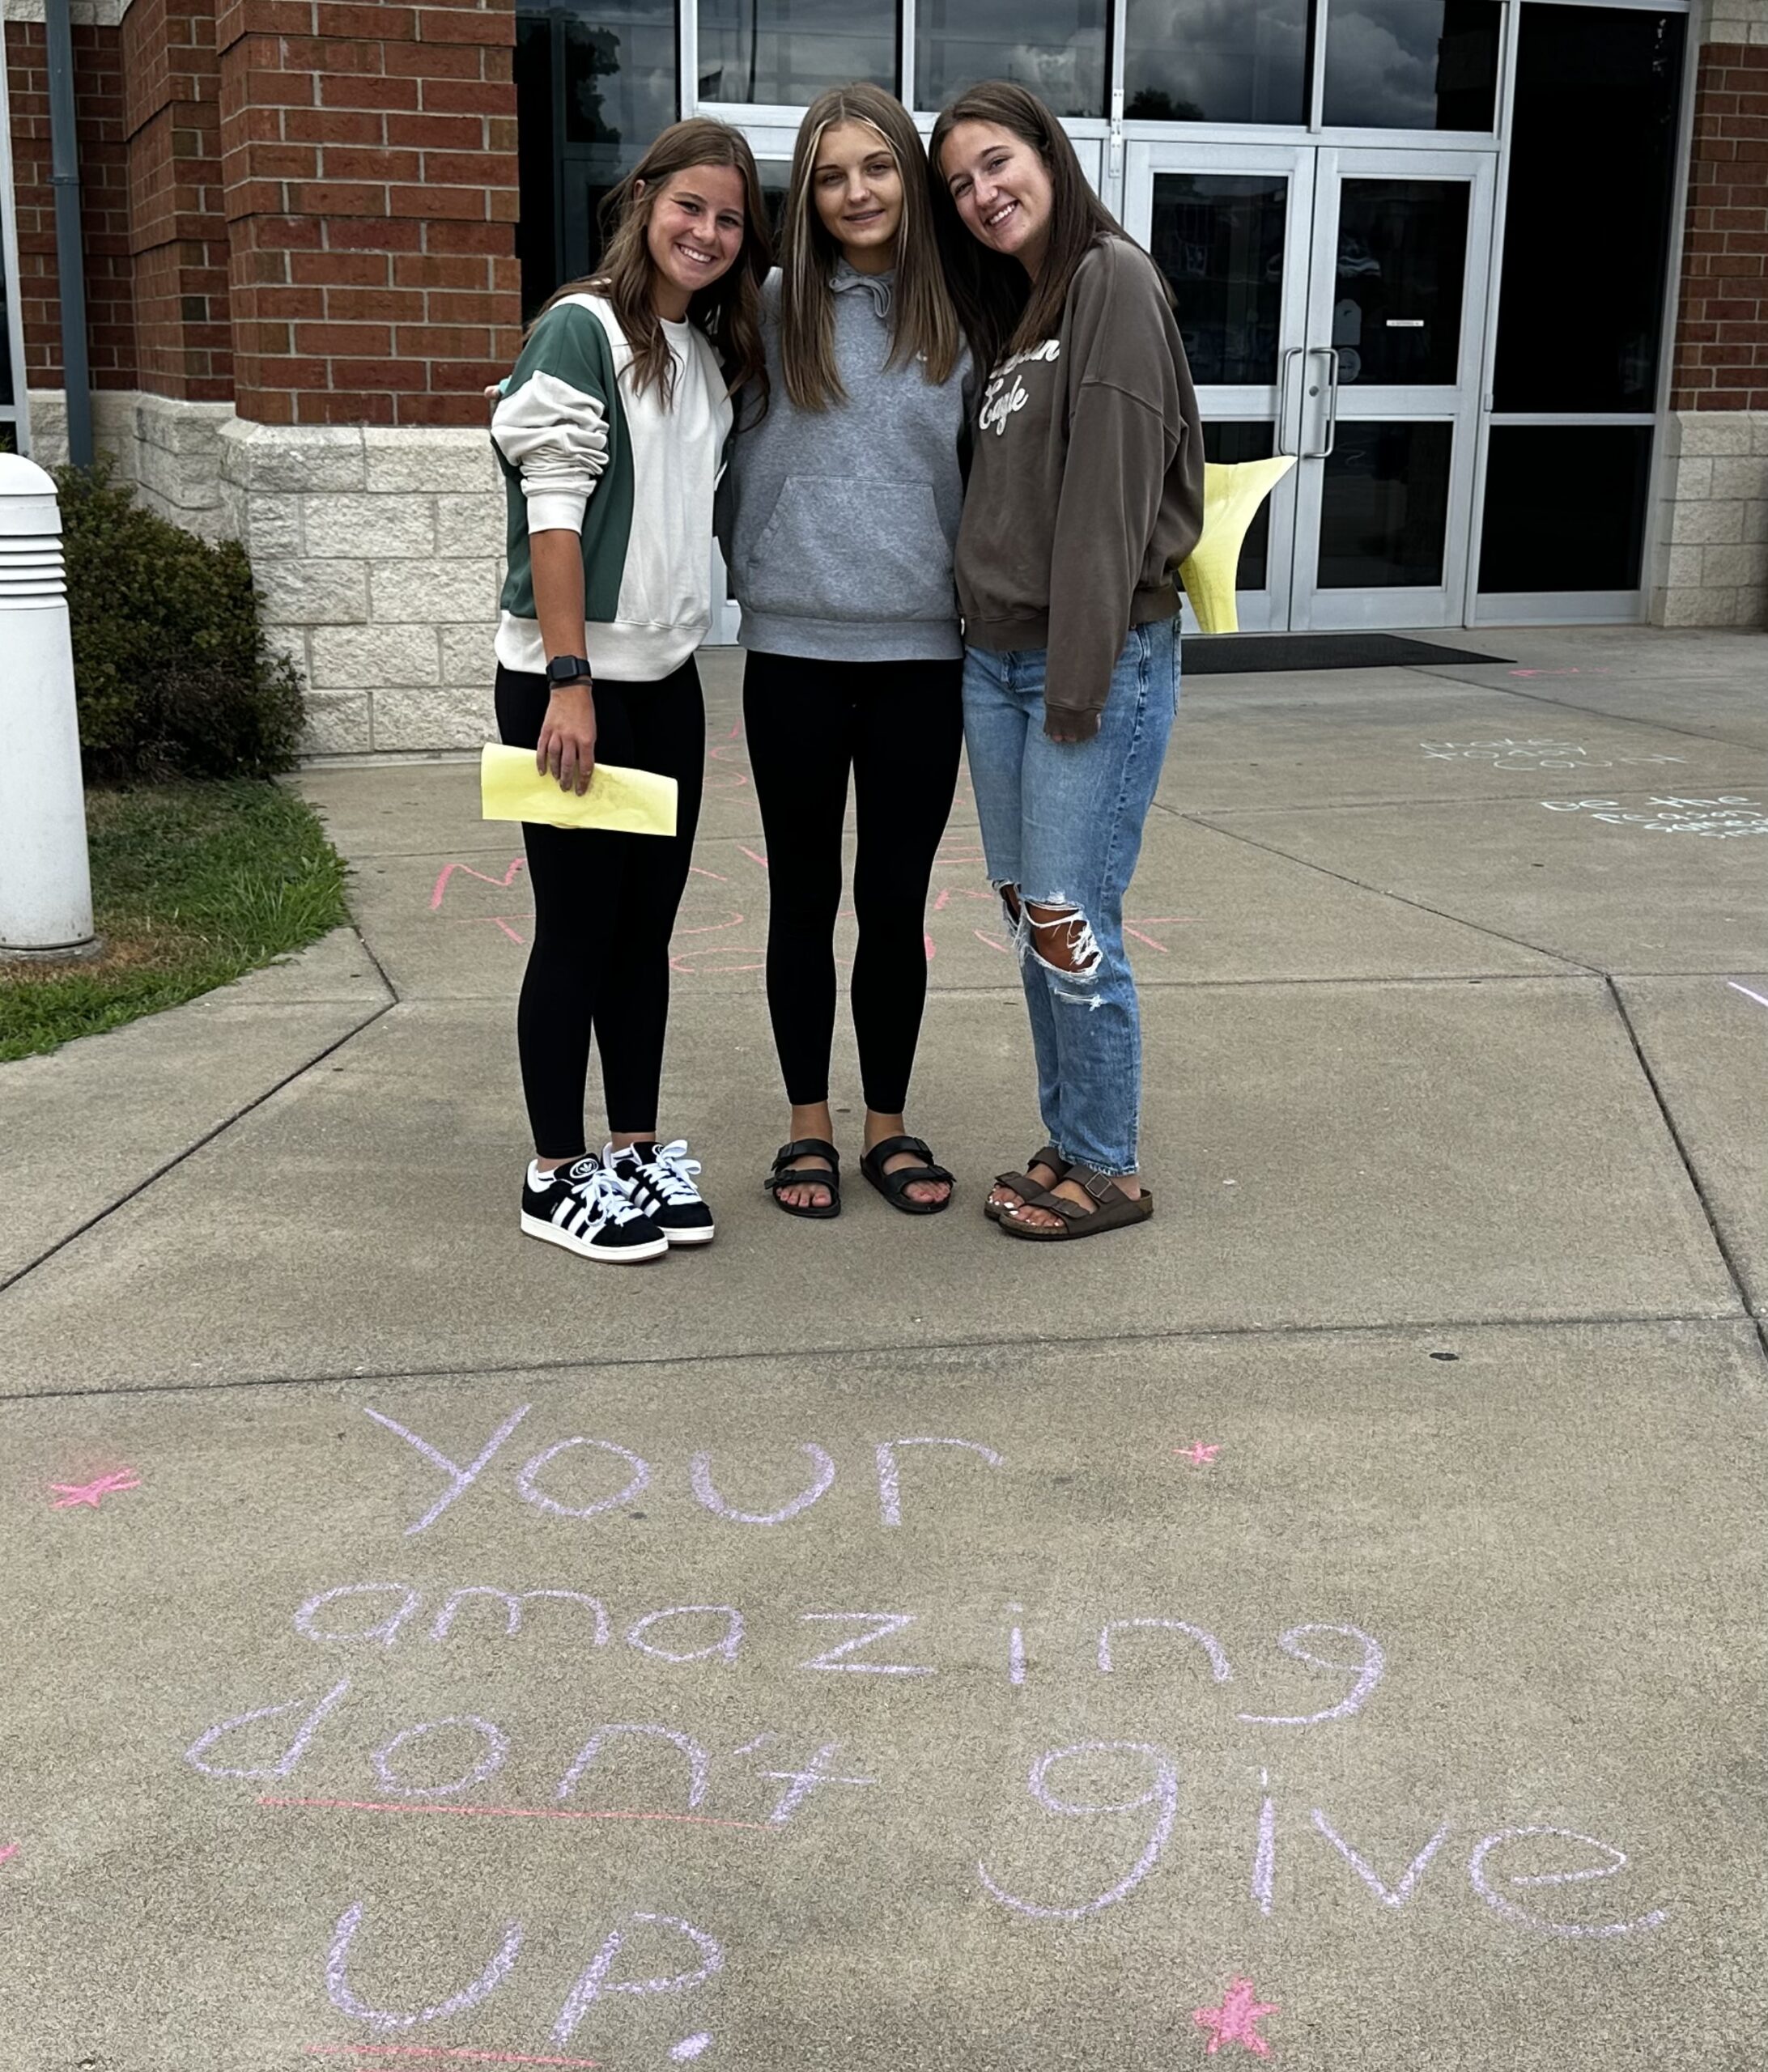 Eagle
make
today
count
Be the
reason
someone
your
amazing
don't give
up.